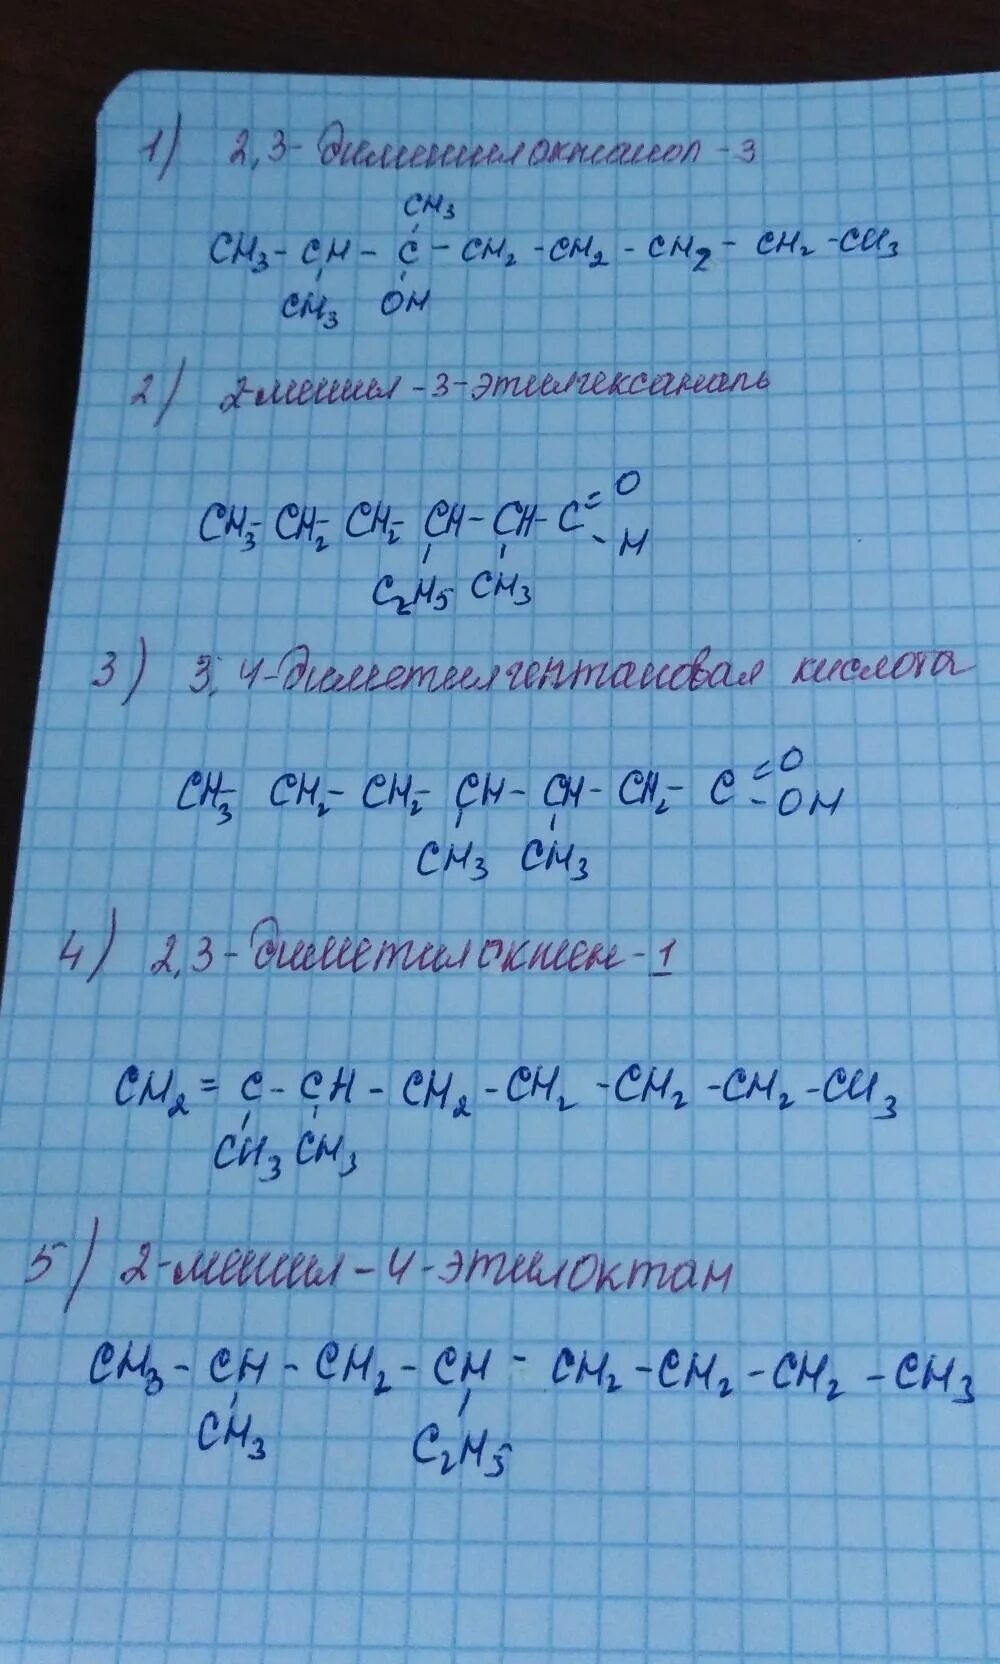 1) 2,3-диметилоктанол-3
CH3
CH3-CH-C-CH2-CH2-CH2-CH2-CH3
CH3 OH
2) 2-метил-3-этилгексаналь
=O
CH3-CH2-CH2-CH-CH-C
-H
C2H5 CH3
3) 3,4-диметилгептановая кислота
=O
CH3- CH2-CH2-CH-CH-CH2-C
-OH
CH3 CH3
4) 2,3-диметилоктен-1
CH2=C-CH-CH2-CH2-CH2-CH2-CH3
CH3 CH3
5) 2-метил-4-этилоктан
CH3-CH-CH2-CH-CH2-CH2-CH2-CH3
CH3 C2H5